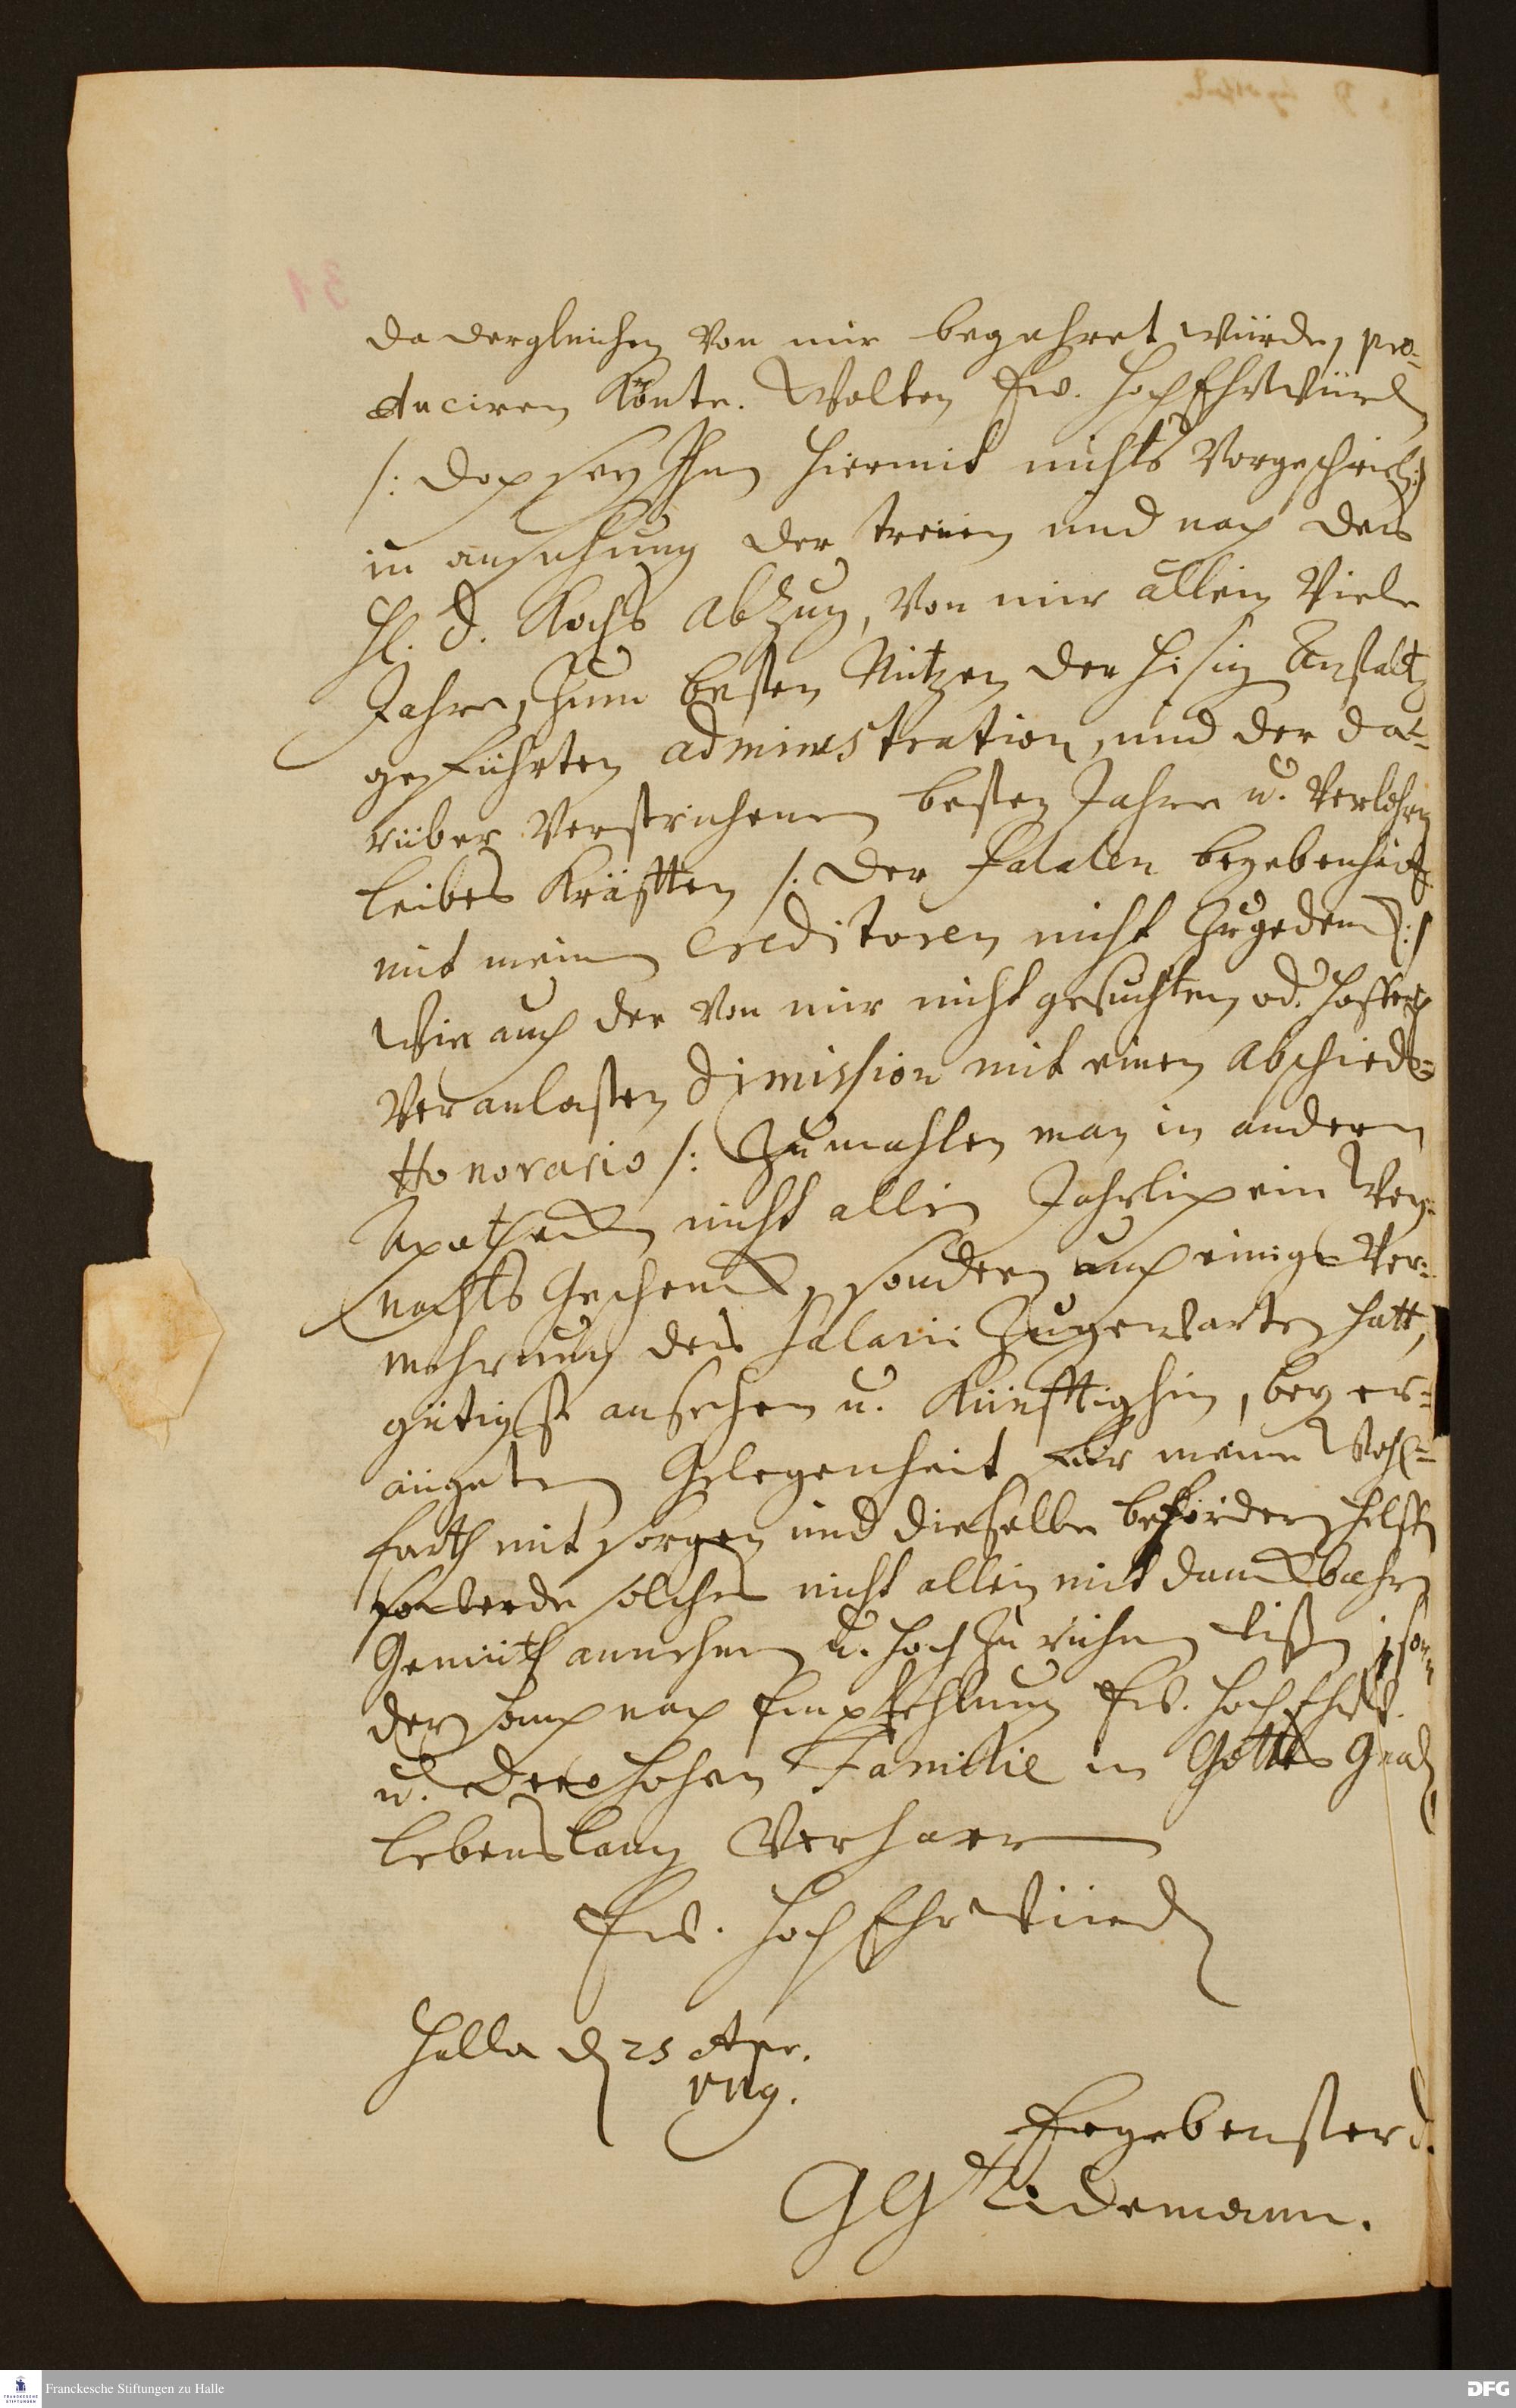 da dergleichen von mir begehret würde, pro-
duciren könte. Wolten Ew. HochEhrwürd
/: doch sey Ihn hiermit nichts vorgeschrieb :/
in ansehung der treuen und nach des
H. D. Kochs abzug, von mir allein viele
Jahre, zum besten Nutzen der hisig Anstalt
geführten administration, und der da-
rüber verstrichenen besten Jahre u. verlohrn
leibes Kräfften /: der fatalen begebenheit
mit meinen creditoren nicht zugeden :/
wie auch der von mir nicht gesuchten, od.
veranlasten Dimission mit einen abschieds-
Honorario /: zumahlen man in andern
Apothecken nicht allein Jahrlich ein Wey-
nachts Geschenck, sondern auch einige ver-
mehrung des Salarii zugewarten hatt,
gütigst ansehen u. künfftighin, bey er-
äugeten Gelegenheit für meine Wohl-
farth mit sorgen und dieselbe befördern helffen
so werde solches nicht allein mit danckbahren
Gemüth annehmen u. hoch zu rühmen wißen, son-
dern auch nach Empfehlung Ew. HochEhrw.
u. Dero hohen Familie in Gottes Gnad
lebenslang verharren
Ew. HochEhrwürd
Halle d 25 Apr.
Ergebenster d.
GG Tidemann.
Franckesche Stiftungen zu Halle
DFG